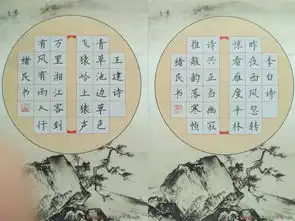 李白诗
昨夜西风忽转
惊看雁度平林
诗兴正当幽寂
推敲韵落寒砧
绪民书
王建诗
青草池边草色
飞猿岭上猿声
万里湘江客到
有风有雨人行
绪民书